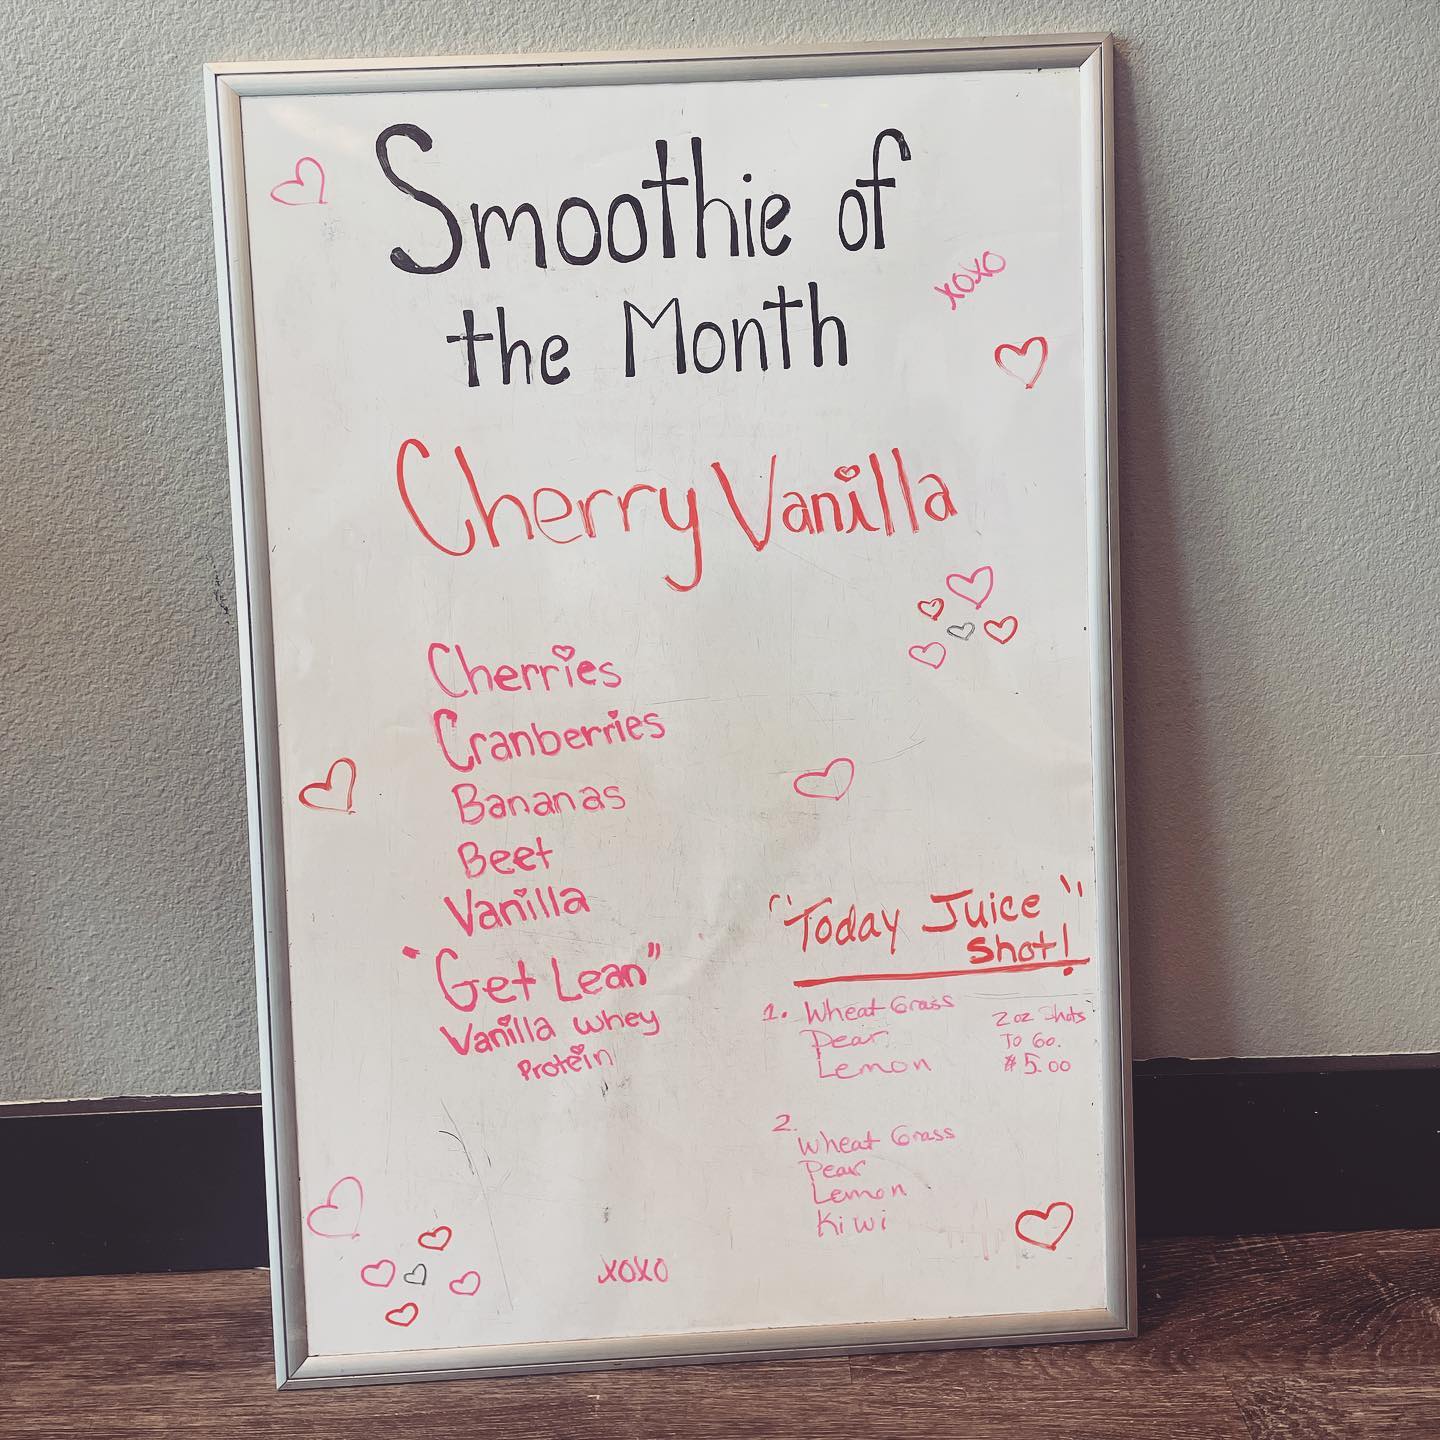 Smoothie of
the Month
xoxo
Cherry Vanilla
Cherries
Cranberries
Bananas
Beet
Vanilla
"Get Lean"
Vanilla Whey
Protein
"Today Juice"
Shot!
1. Wheat Grass
Pear
Lemon
2 oz Shots
To Go.
$5.00
2.
Wheat Grass
Pear
Lemon
Kiwi
xoxo